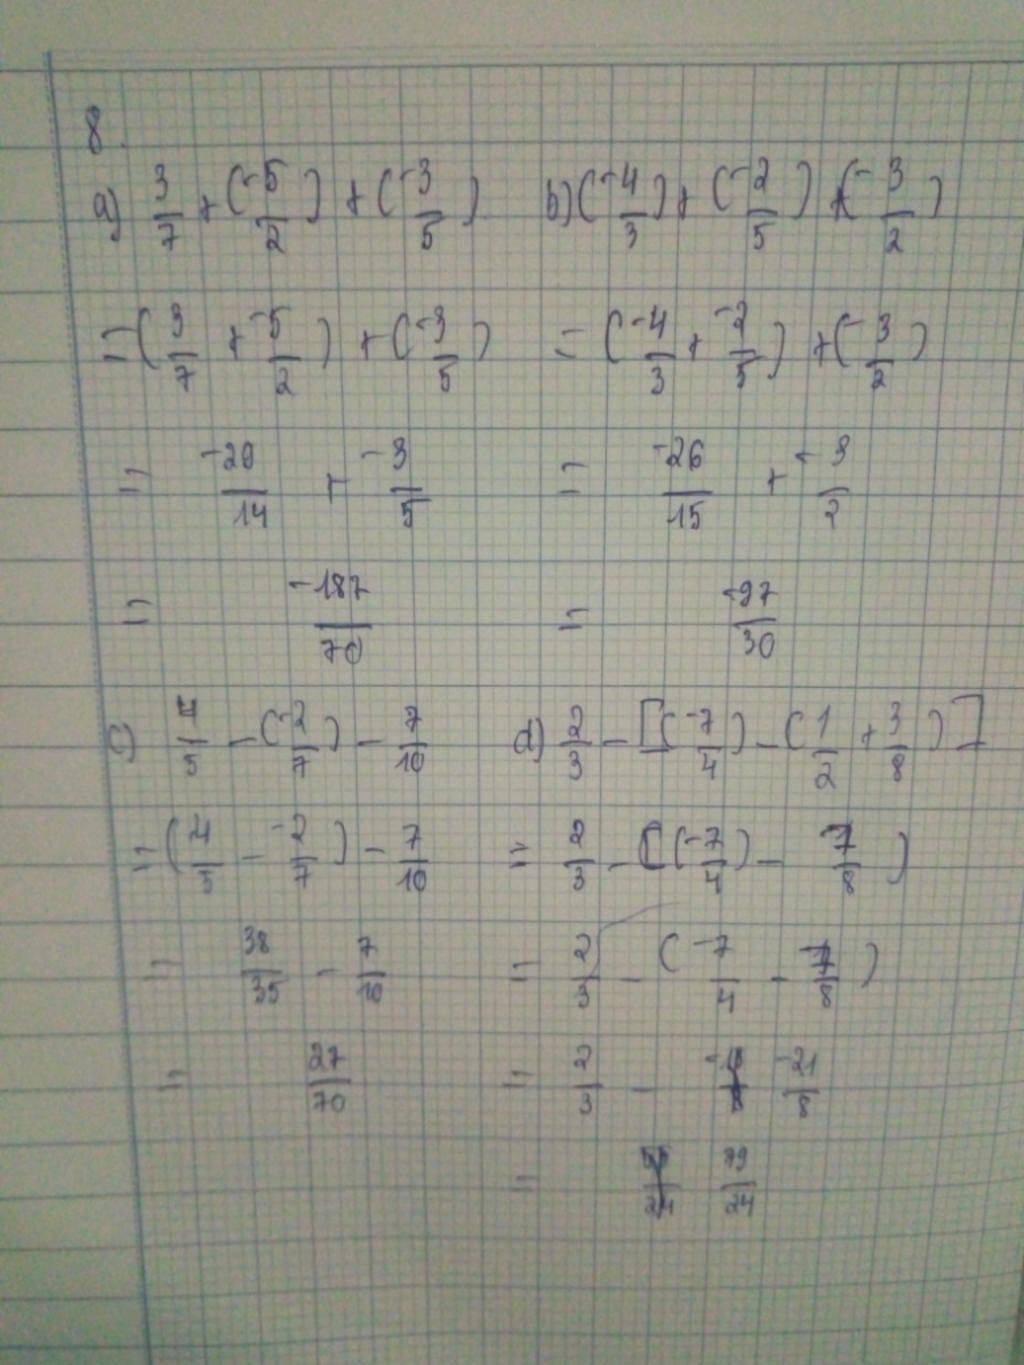 8.
a) 3/7 + (-5/2) + (-3/5)
= (3/7 + -5/2) + (-3/5)
= -29/14 + -3/5
= -187/70
b) (-4/3) + (-2/5) + (-3/2)
= (-4/3 + -2/5) + (-3/2)
= -26/15 + -3/2
= -97/30
c) 4/5 - (-2/7) - 7/10
= (4/5 - -2/7) - 7/10
= 38/35 - 7/10
= 27/70
d) 2/3 - [(-7/4) - (1/2 + 3/8)]
= 2/3 - [(-7/4) - 7/8)
= 2/3 - (-7/4 - 7/8)
= 2/3 - -21/8
= 79/24